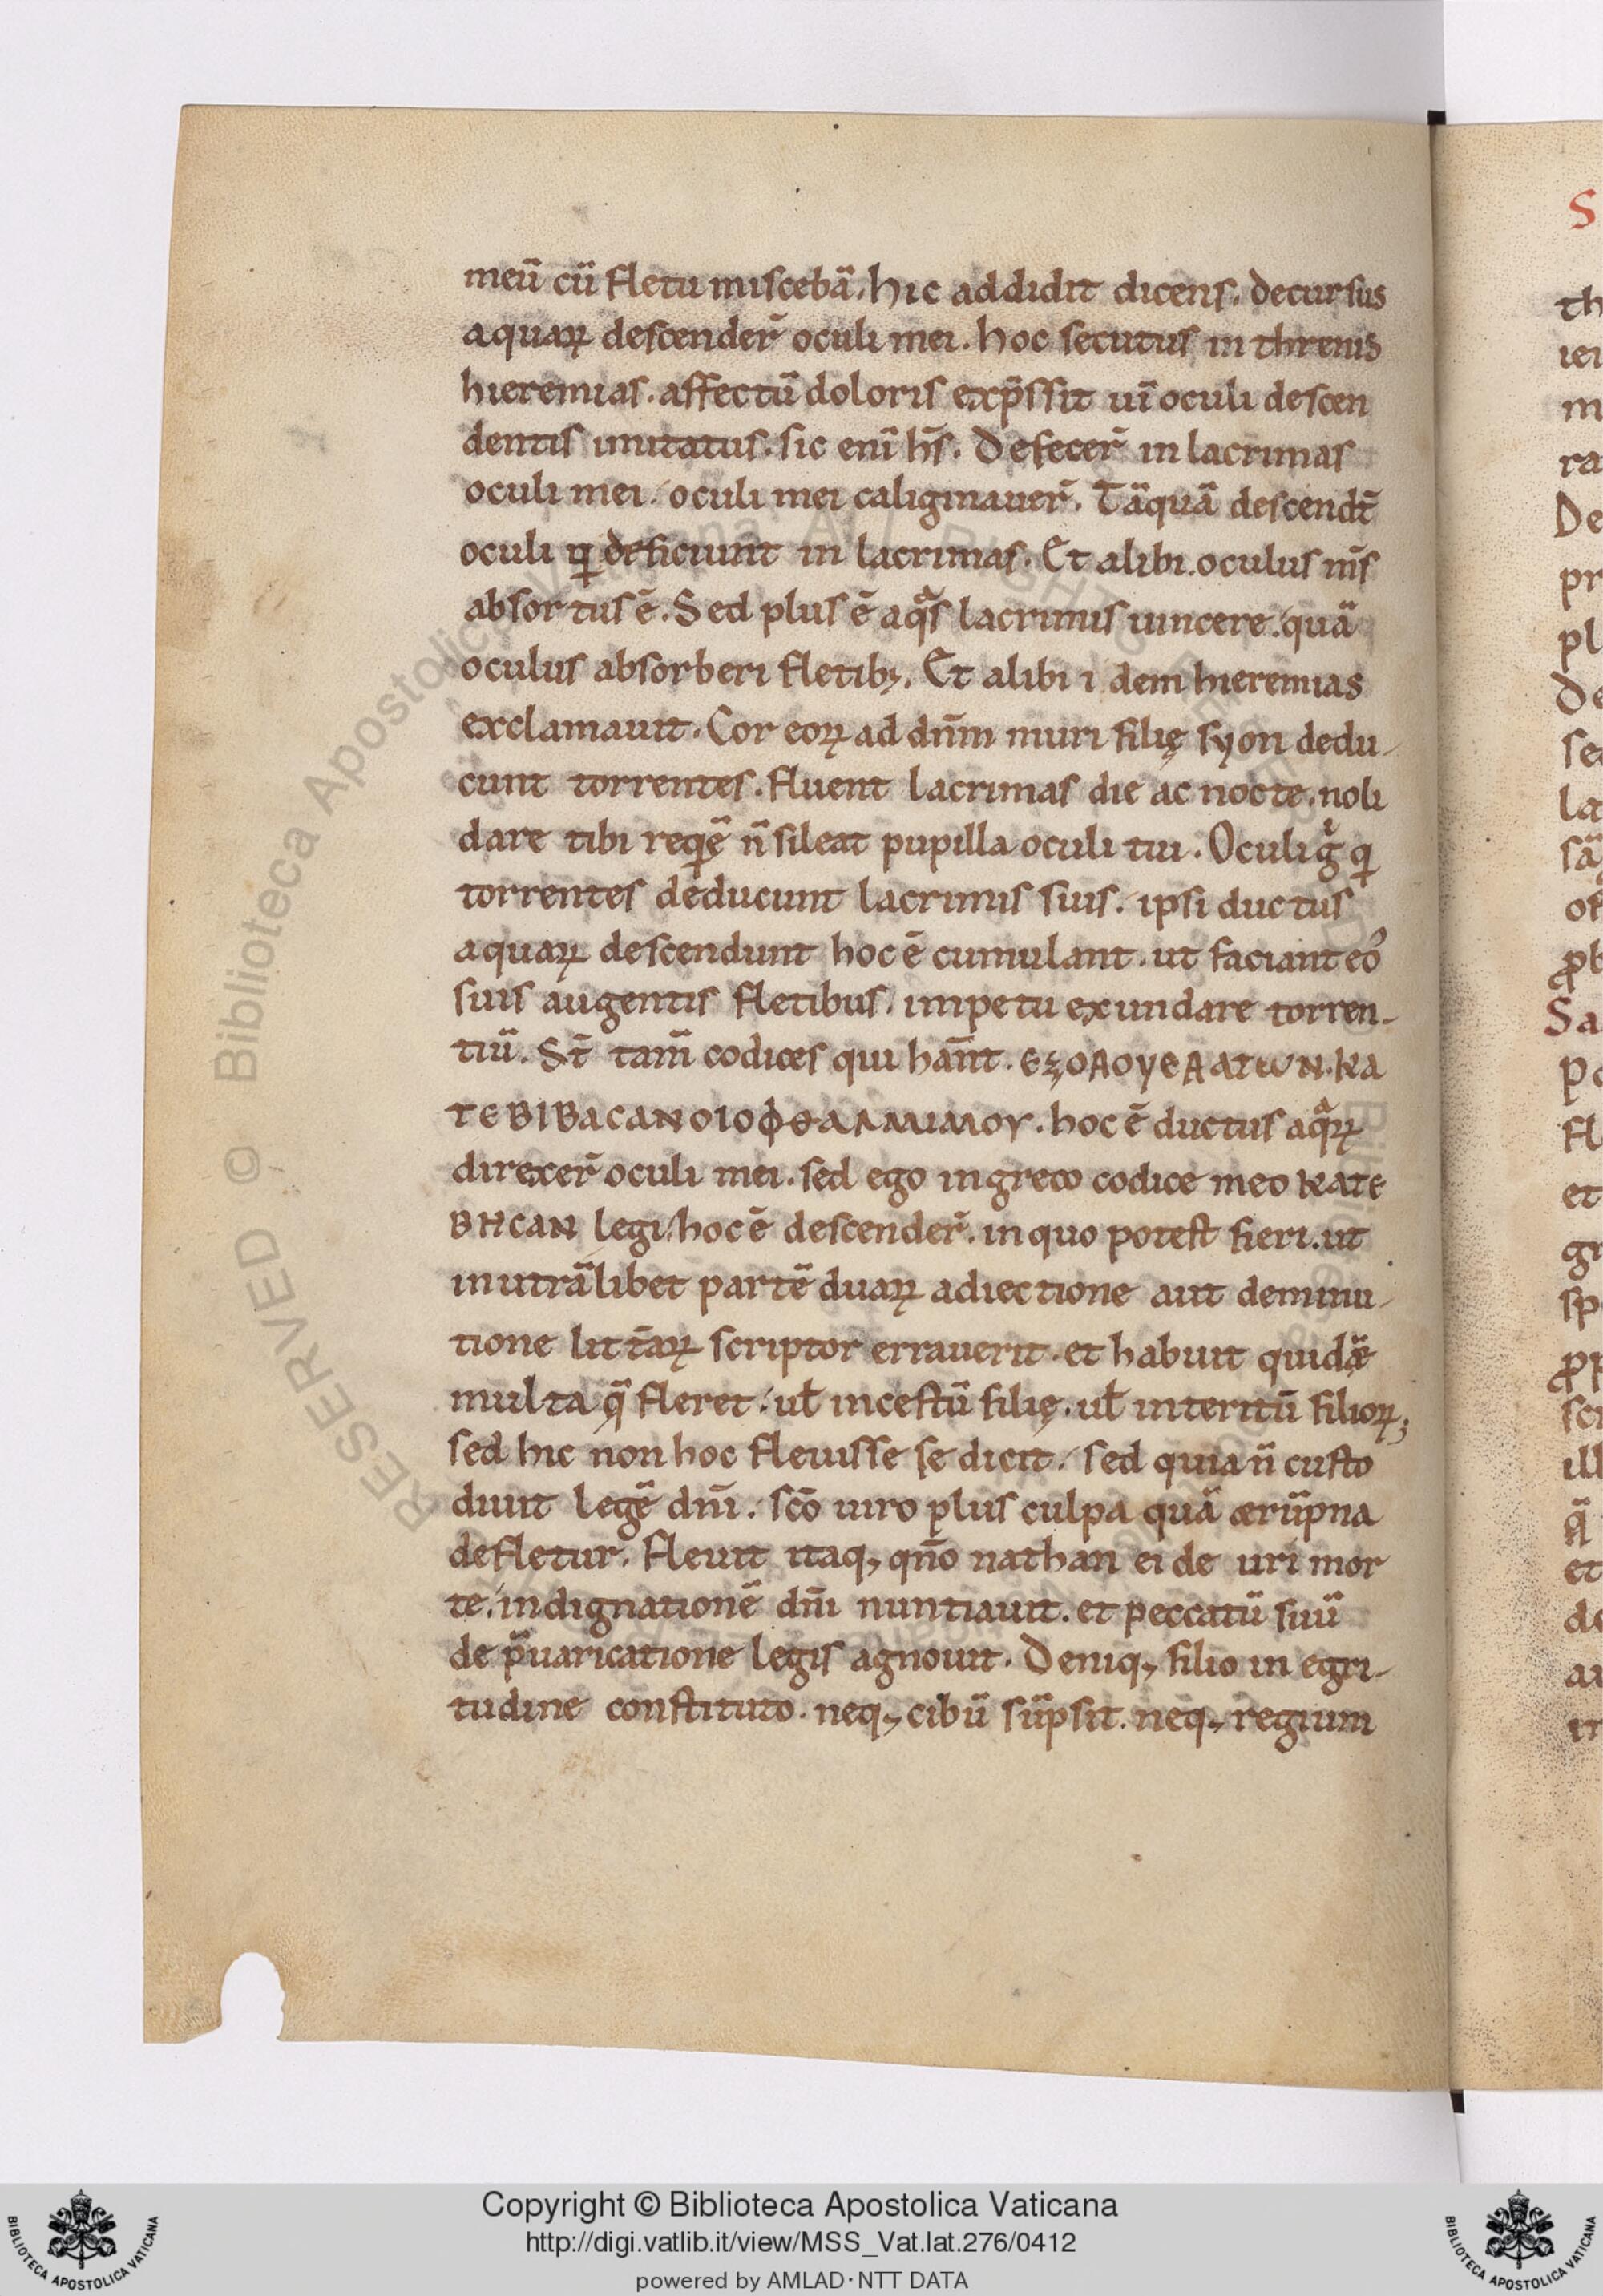 meū cū fletu miscebā. hic addidit dicens. decursus
aquaꝝ descender̄ oculi mei. hoc secutus in threnis
hieremias. affectū doloris exp̄ssit uī oculi descen
dentis imitatus. sic enī h̄s. Defecer̄ in lacrimas
oculi mei. oculi mei caliginauer̄. Tāquā descendt̄
oculi q deficiunt in lacrimas. Et alibi. oculus m̄s
absortus ē. Sed plus ē aqᷓs lacrimis uincere. quā
oculus absorberi fletibꝫ. Et alibi idem hieremias
exclamauit. Cor eoꝝ ad dn̄m muri filię syon dedu-
cunt torrentes. fluent lacrimas die ac nocte. noli
dare tibi reqē n̄ sileat pupilla oculi tui. Oculi gͦ q
torrentes deducunt lacrimis suis. ipsi ductus
aquaꝝ descendunt hoc ē cumulant. ut faciant eoʼ
suis augentis fletibus. impetu exundare torren-
tiū. St̄ tam̄ codices qui han̄t. ΕΞΟΔΟΥΕΑΑΤѠΝ. ΚΑ
ΤΕΒΙΒΑCΑΝΟΙΟΦΘΑΛΜΙΜΟΥ. hoc ē ductus aqᷓꝝ
direxer̄ oculi mei. sed ego in greco codice meo ΚΑΤΕ
ΒΗCΑΝ legi. hoc ē descender̄. in quo potest fieri. ut
in utrālibet partē duaꝝ adiectione aut deminu-
tione litt̄aꝝ scriptor errauerit. et habuit quidē
multa q̄ fleret. ul̄ incestū filię. ul̄ interitū filioꝝ;
sed hic non hoc fleuisse se dicit. sed quia n̄ custo
diuit legē dn̄i. sc̄o uiro plus culpa quā ærūpna
defletur. Fleuit itaqꝫ qn̄o nathan ei de uri mor
te. indignationē dn̄i nuntiauit. et peccatū suū
de p̄uaricatione legis agnouit. Deniqꝫ filio in egri-
tudine constituto. neqꝫ cibū sūpsit. neqꝫ regium
S
th
iei
m
ra
De
pr
pl
De
sed
la
sā
of
ꝓb
Sa
po
fl
et
gr
sp
ꝓp
scr
ill
q̄
et
de
au
in
Copyright © Biblioteca Apostolica Vaticana
http://digi.vatlib.it/view/MSS_Vat.lat.276/0412
powered by AMLAD·NTT DATA